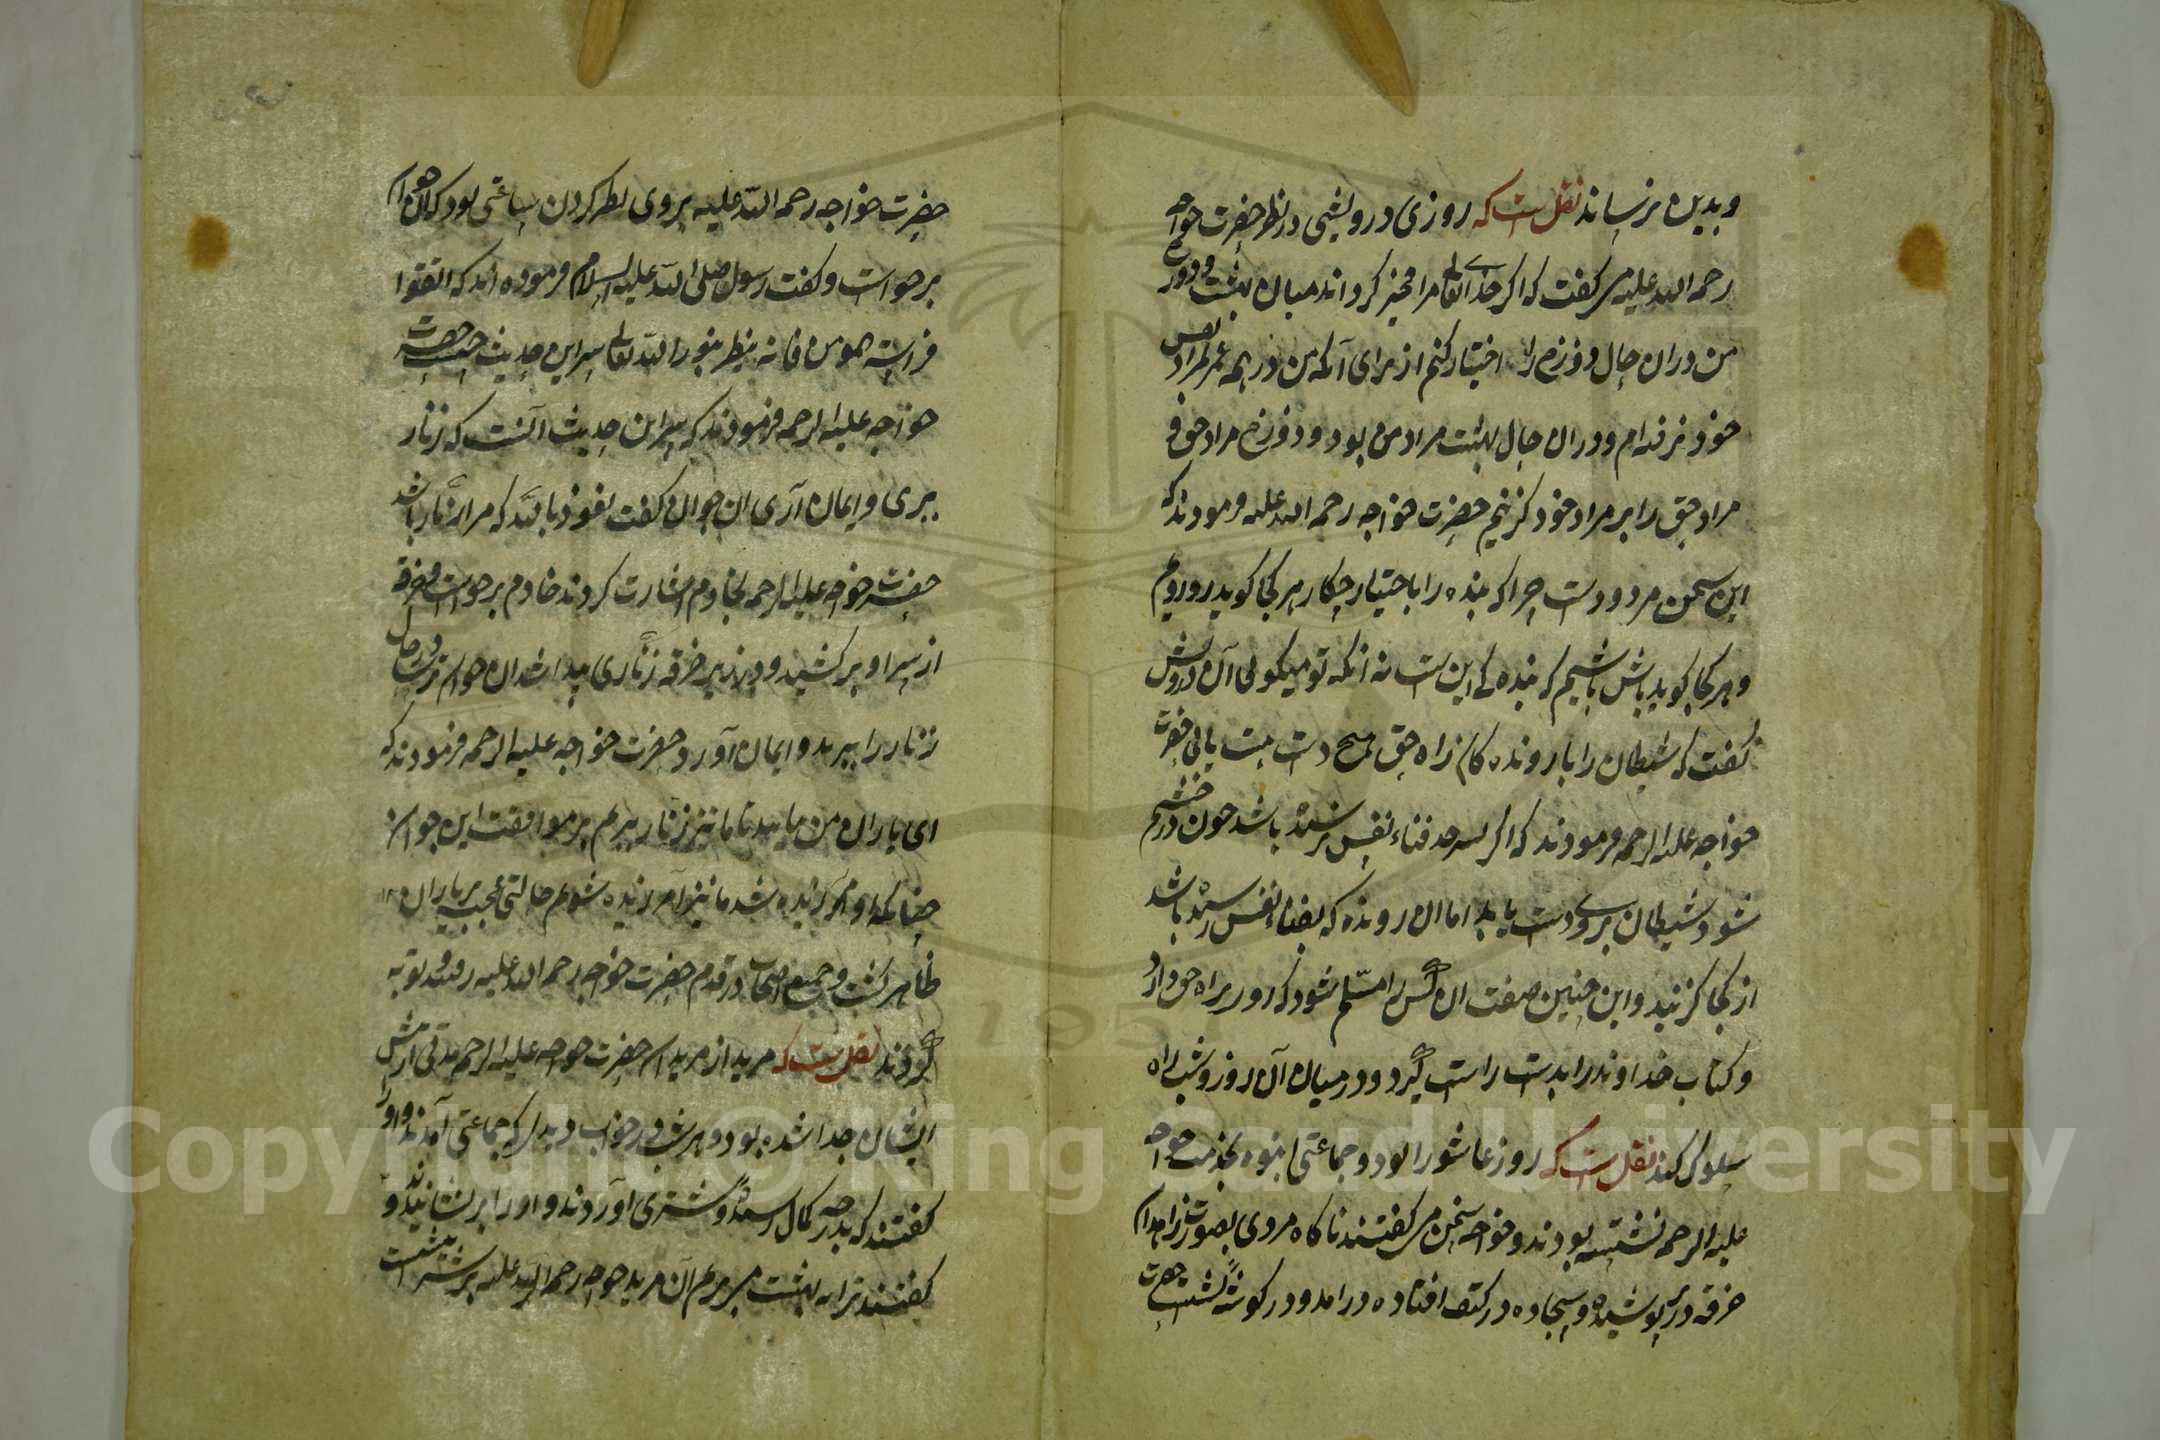 و بدین برساند نقل ست که روزی درویشی در نظر حضرت خواجه
رحمه الله علیه می گفت که اگر خدای تعالی مرا مخیر گرداند میان بهشت و دوزخ
من دران حال دوزخ را اختیار کنم از برای آنکه من در همه عمر بر مراد نفس
خود نرفته ام و دران حال بهشت مراد من بود و دوزخ مراد حق و
مراد حق را بر مراد خود گزینم حضرت خواجه رحمه الله علیه فرمودند که
این سخن مردودست چرا که بنده را باختیار چکار هر کجا گوید رو رویم
و هر کجا گوید باش باشیم که بندگی این ست نه انکه تو میگوئی آن درویش
گفت که شیطان را با رونده گان راه حق هیچ دست هست یا نی حضرت
خواجه علیه الرحمه فرمودند که اگر بسرحد فناء نفس نرسیده باشد چون در خشم
شود شیطان بروی دست یابد اما ان رونده که بفناء نفس رسیده باشد
از کجا گزنید و این چنین صفت ان کس را مسلم شود که رو براه حق دارد
و کتاب خداوند را بدست راست گیرد و در میان آن روز و شب راه
سلوک کند نقل ست که روز عاشورا بود و جماعتی انبوه بخدمت خواجه
علیه الرحمه نشسته بودند و خواجه سخن می گفتند ناگاه مردی بصورت زاهدان
خرقه در پوشیده و سجاده در کتف افتاده درامد و در گوشه نشست حضرت
حضرت خواجه رحمه الله علیه بروی نظر کردن ساعتی بود که آن جوان
برخواست و گفت رسول صلی الله علیه السلام فرموده اند که اتقوا
فراسة المومن فانه ینظر بنور الله تعالی سر این حدیث چیست حضرت
خواجه علیه الرحمه فرمودند که سر این حدیث آنست که زنار
ببری و ایمان آری ان جوان گفت نعوذ بالله که مرا زنار باشد
حضرت خواجه علیه الرحمه بخادم اشارت کردند خادم برخواست و خرقه
از سر او برکشید و در زیر خرقه زناری پیدا شد ان جوان
زنار را ببرید و ایمان آورد حضرت خواجه علیه الرحمه فرمودند که
ای یاران من بیایید تا ما نیز زنار ببریم بر موافقت این جوان
چنانکه او آمرزیده شد ما نیز آمرزیده شویم حالتی عجب بر یاران
ظاهر گشت و جمیع اصحاب در قدم حضرت خواجه رحمه الله علیه رفتند و توبه
کردند نقل ست که مرید از مریدان حضرت خواجه علیه الرحمه مدتی از پیش
ایشان جدا شده بود و هر شب در خواب دیدی که جماعتی آمدند و او را
گفتند که بدرجه کمال رسیده و شتری آوردند و او را برنشانیدند و
گفتند ترا به بهشت میبریم آن مرید خواجه رحمه الله علیه بر شتر نشست
Copyright © King Saud University
1957